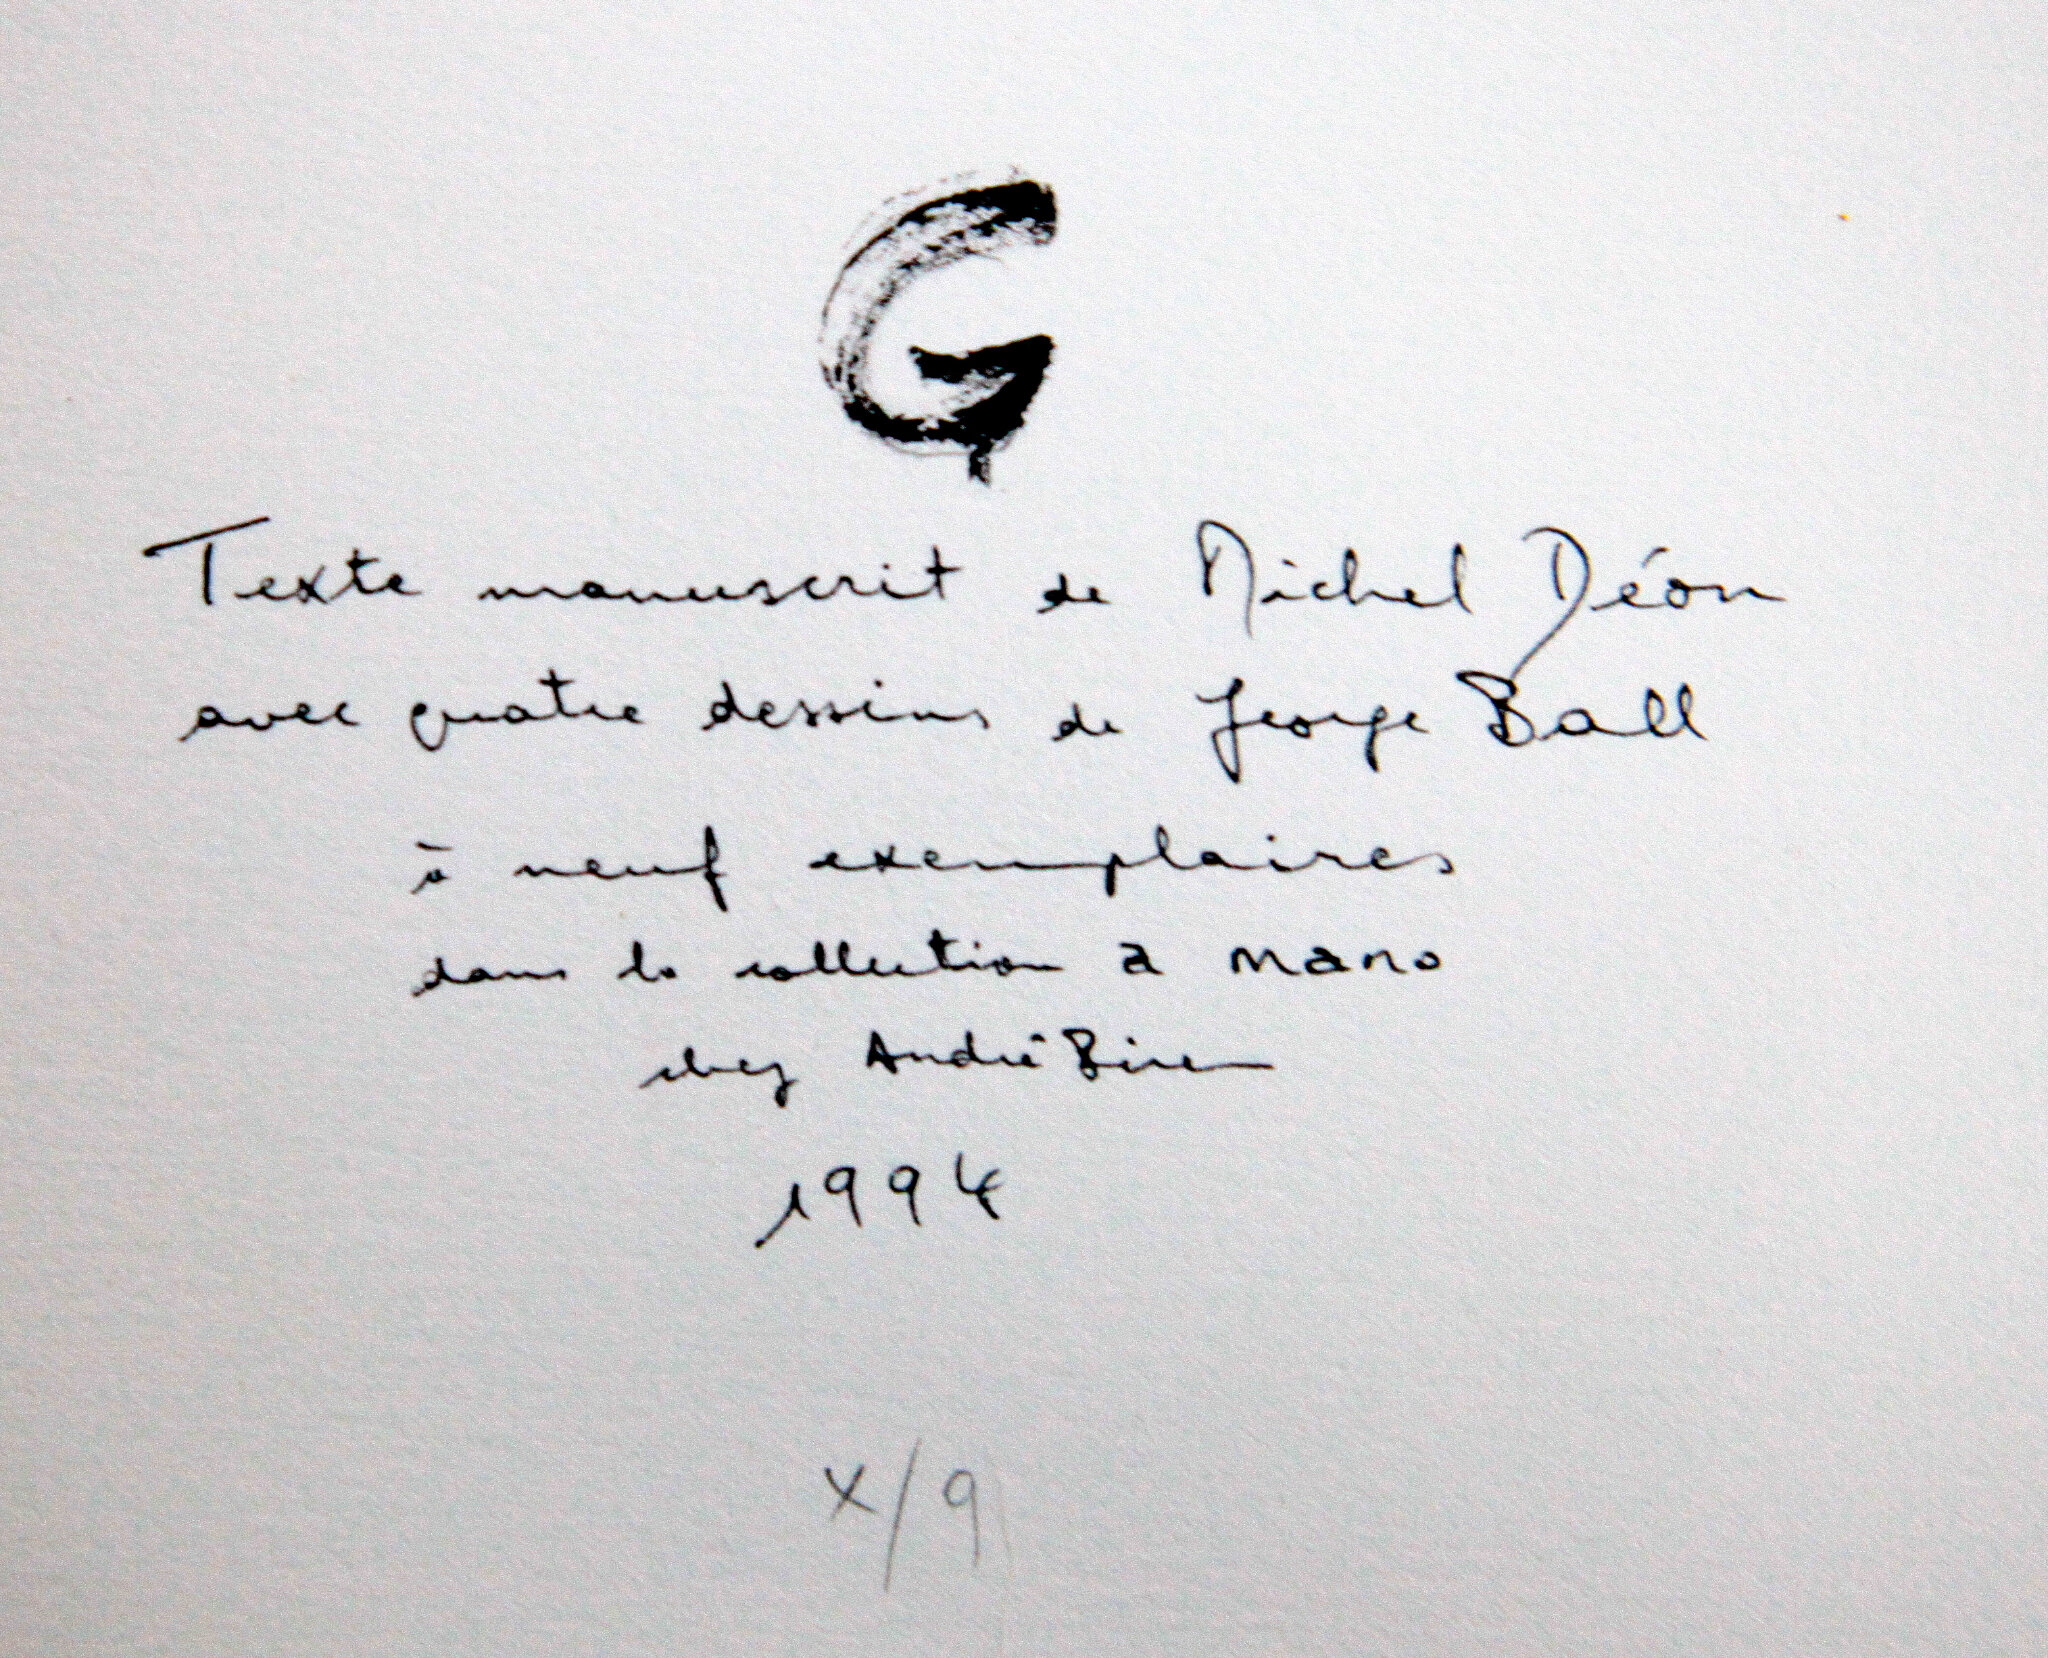 G
Texte manuscrit de Michel Déon
avec quatre dessins de George Ball
à neuf exemplaires
dans la collection a mano
chez André Biren
1994
x/9